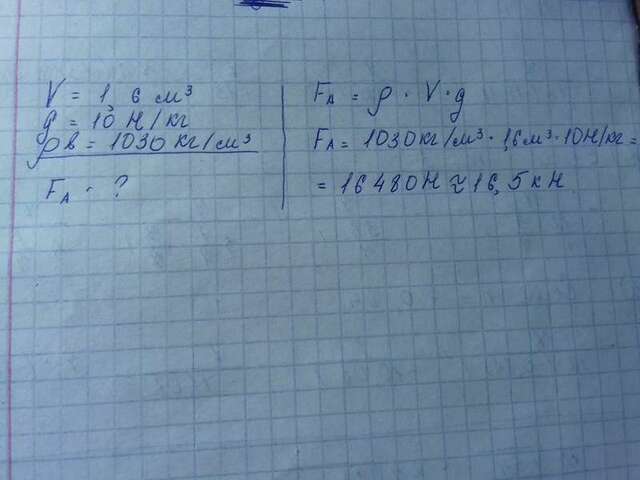 V = 1,6 м³
g = 10 Н/кг
ρв = 1030 кг/см³
Fᴀ - ?
Fᴀ = ρ · V · g
Fᴀ = 1030кг/м³ · 1,6м³ · 10Н/кг =
= 16480Н ≈ 16,5кН